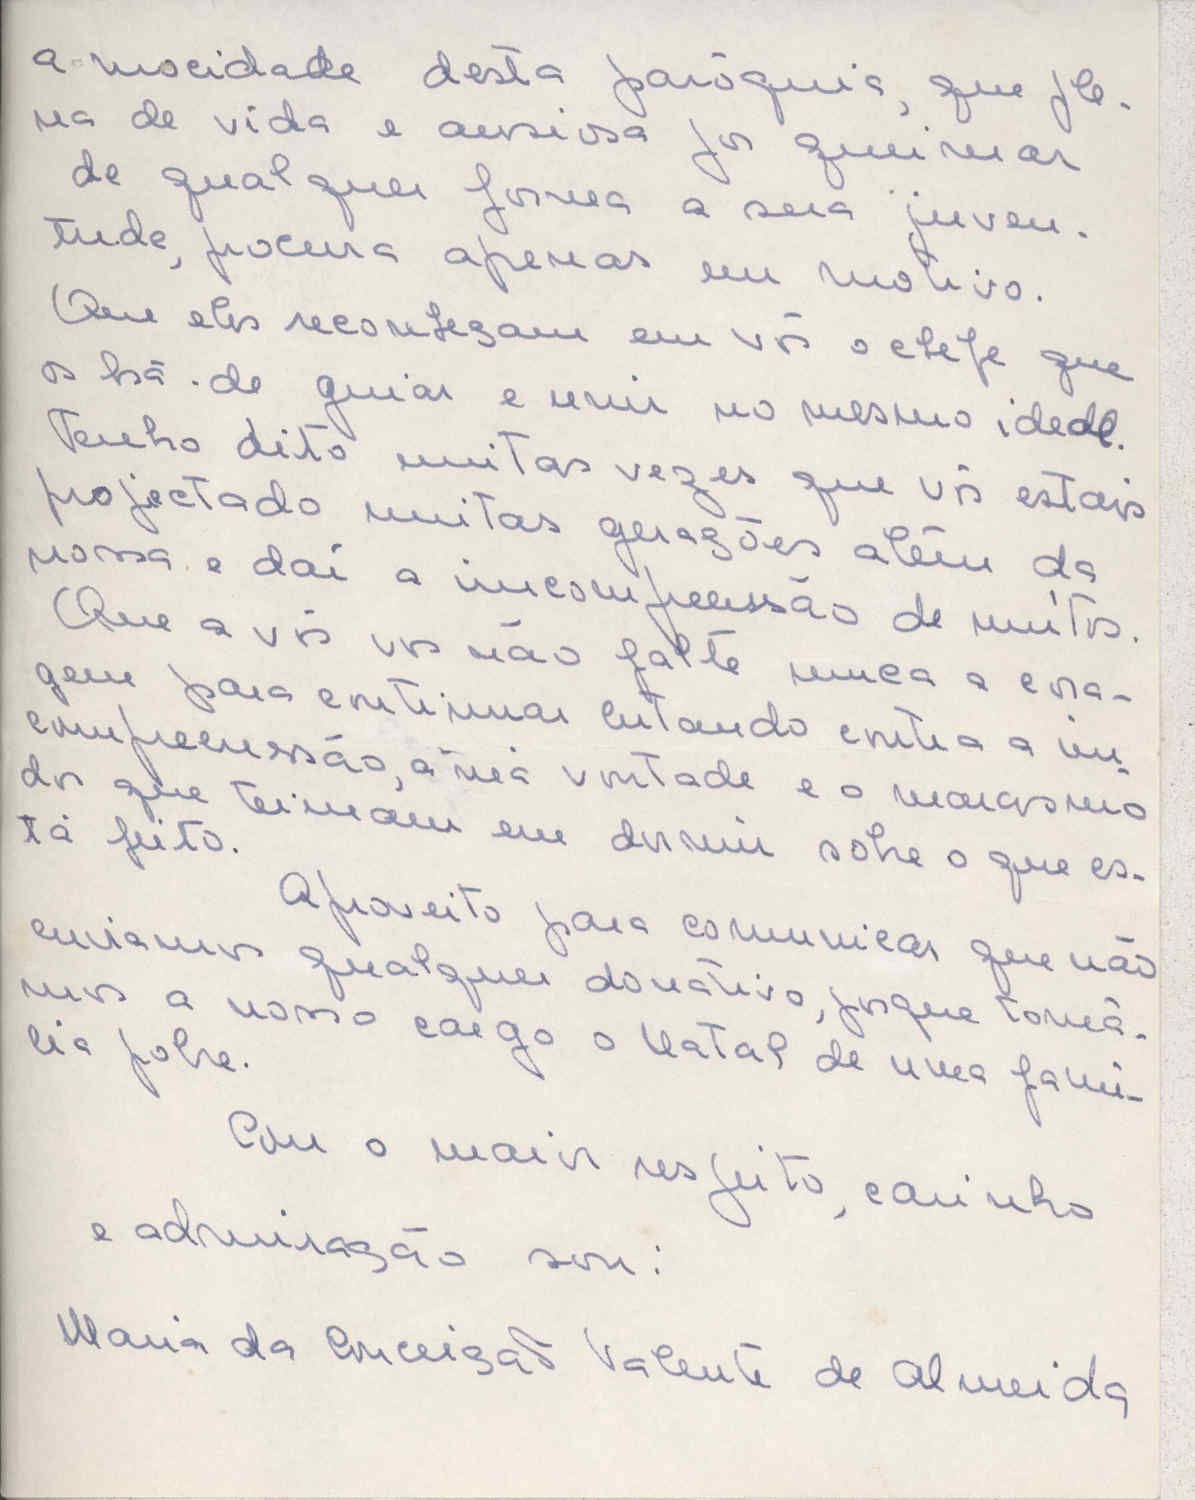 a mocidade desta paróquia, que ple-
na de vida e ansiosa por queimar
de qualquer forma a sua juven-
tude, procura apenas um motivo.
Que eles reconheçam em vós o chefe que
os há-de guiar e unir no mesmo ideal.
Tenho dito muitas vezes que vós estais
projectado muitas gerações além da
nossa e daí a incompreensão de muitos.
Que a vós vos não falte nunca a cora-
gem para continuar lutando contra a in-
compreenssão, a má vontade e o marasmo
dos que teimam em dormir sobre o que es-
tá feito.
Aproveito para comunicar que não
enviamos qualquer donativo, porque tomá-
mos a nosso cargo o Natal de uma famí-
lia pobre.
Com o maior respeito, carinho
e admiração sou:
Maria da Conceição Valente de Almeida